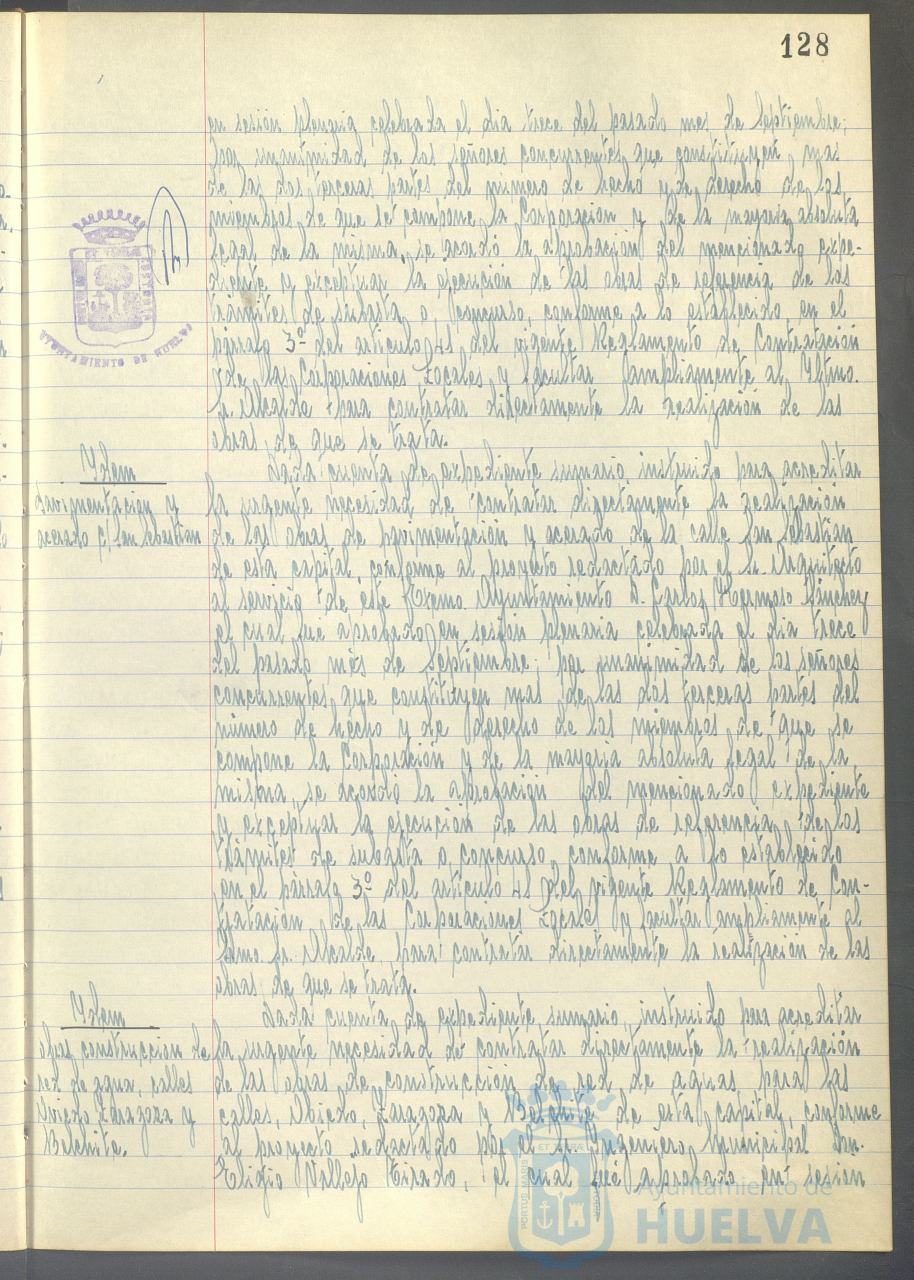 128
en sesión plenaria celebrada el dia trece del pasado mes de Septiembre;
por unanimidad de los señores concurrentes que constituyen mas
de las dos terceras partes del número de hecho y de derecho de los
miembros de que se compone la Corporación y de la mayoria absoluta
legal de la misma, se acordó la aprobación del mencionado expe-
diente y exceptuar la ejecución de las obras de referencia de los
trámites de subasta o concurso, conforme a lo establecido en el
párrafo 3º del articulo 41 del vigente Reglamento de Contratación
de las Corporaciones Locales y facultar ampliamente al Iltmo.
Sr. Alcalde para contratar directamente la realización de las
obras de que se trata.
AYUNTAMIENTO DE HUELVA
Idem
Pavimentacion y
acerado c/ San Sebastian
Dada cuenta de expediente sumario instruido para acreditar
la urgente necesidad de contratar directamente la realización
de las obras de pavimentación y acerado de la calle San Sebastián
de esta capital, conforme al proyecto redactado por el Sr. Arquitecto
al servicio de este Excmo. Ayuntamiento D. Carlos Hermoso Sánchez
el cual fué aprobado en sesión plenaria celebrada el dia trece
del pasado més de Septiembre; por unanimidad de los señores
concurrentes que constituyen mas de las dos terceras partes del
número de hecho y de derecho de los miembros de que se
compone la Corporación y de la mayoria absoluta legal de la
misma, se acordó la aprobación del mencionado expediente
y exceptuar la ejecución de las obras de referencia de los
trámites de subasta o concurso, conforme a lo establecido
en el párrafo 3º del articulo 41 del vigente Reglamento de Con-
tratación de las Corporaciones Locales y facultar ampliamente al
Iltmo. Sr. Alcalde para contratar directamente la realización de las
obras de que se trata.
Idem
obras construccion de
red de agua, calles
Oviedo Zaragoza y
Belchite.
Dada cuenta de expediente sumario, instruido para acreditar
la urgente necesidad de contratar directamente la realización
de las obras de construcción de red de aguas para las
calles, Oviedo, Zaragoza y Belchite de esta capital, conforme
al proyecto redactado por el Sr. Ingeniero Municipal Don
Eligio Vallejo Tirado, el cual fué aprobado en sesión
PORTUS MARIS
Ayuntamiento de
HUELVA